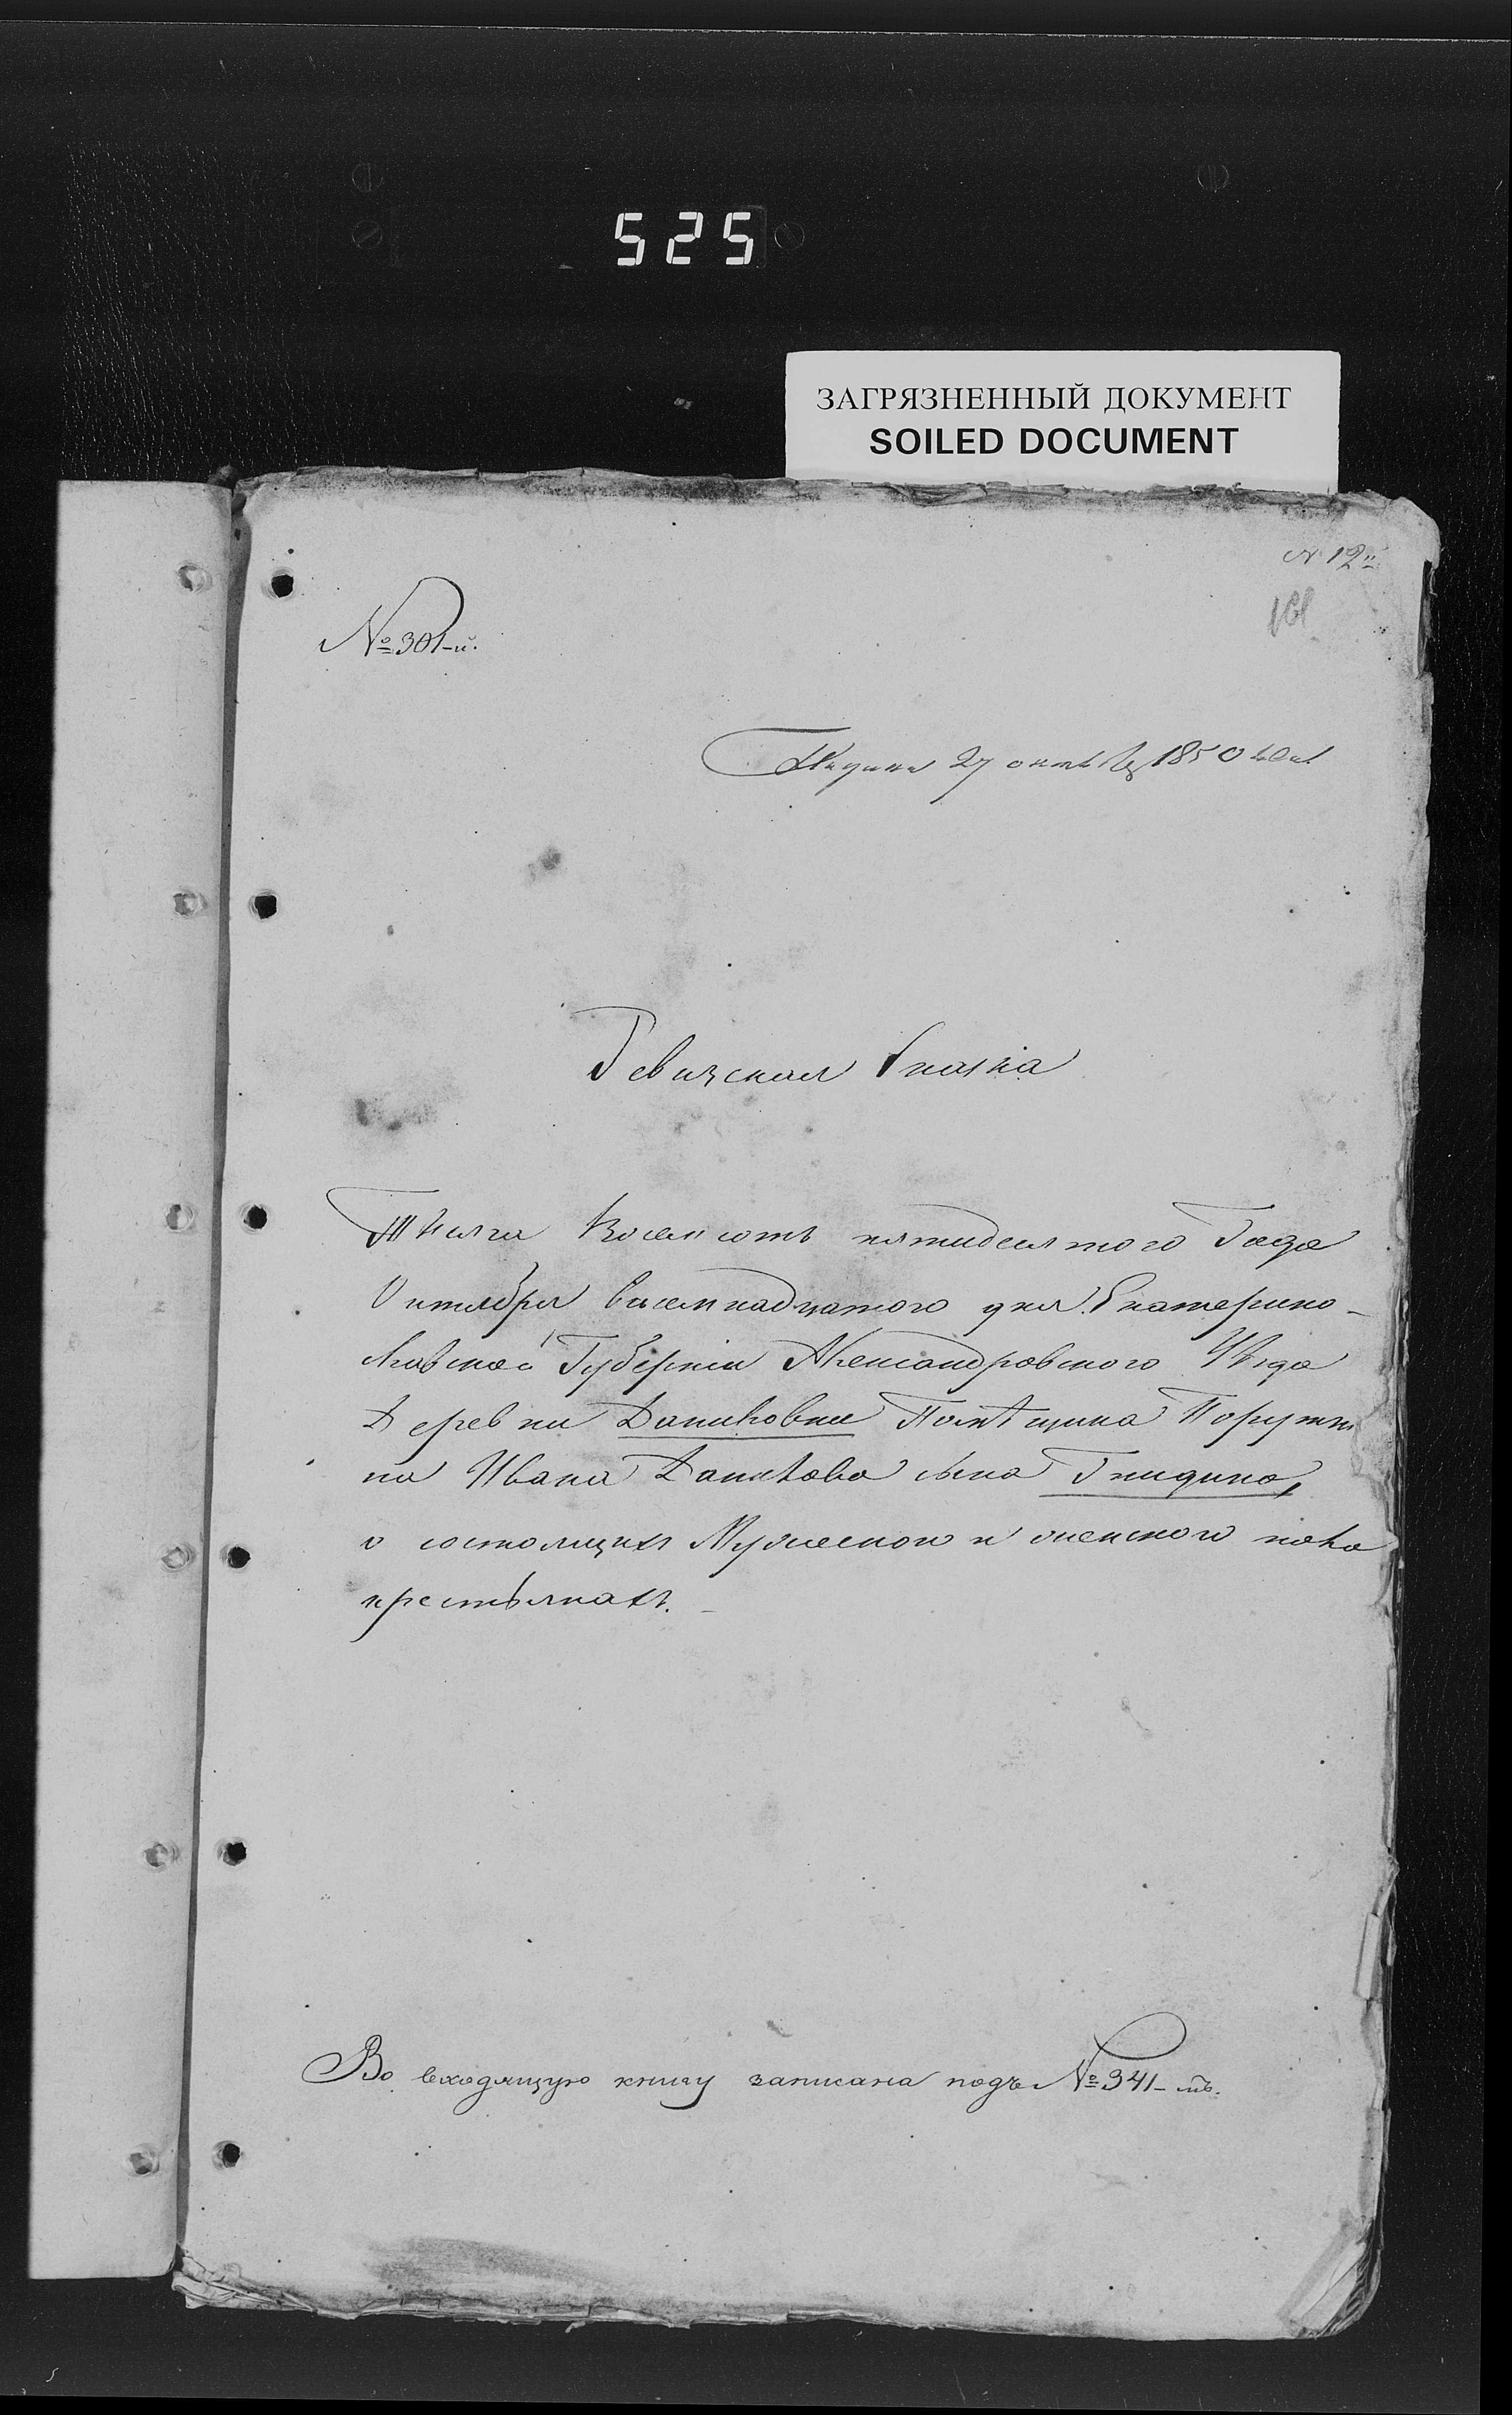 525
ЗАГРЯЗНЕННЫЙ ДОКУМЕНТ
SOILED DOCUMENT
№ 12
№ 301-й.
Подана 27 октября 1850 года
Ревизская Сказка
Тысяча Восемсотъ пятидесятого Года
Октября восемнадцатого дня. Екатерино-
славской Губерніи Александровского Уѣзда
Деревни Даниловки Помѣщика Поручи
ка Ивана Данилова сына Гнидина,
о состоящихъ Мужеского и женского пола
крестьянахъ.
Во входящую книгу записана подъ № 341-мъ.